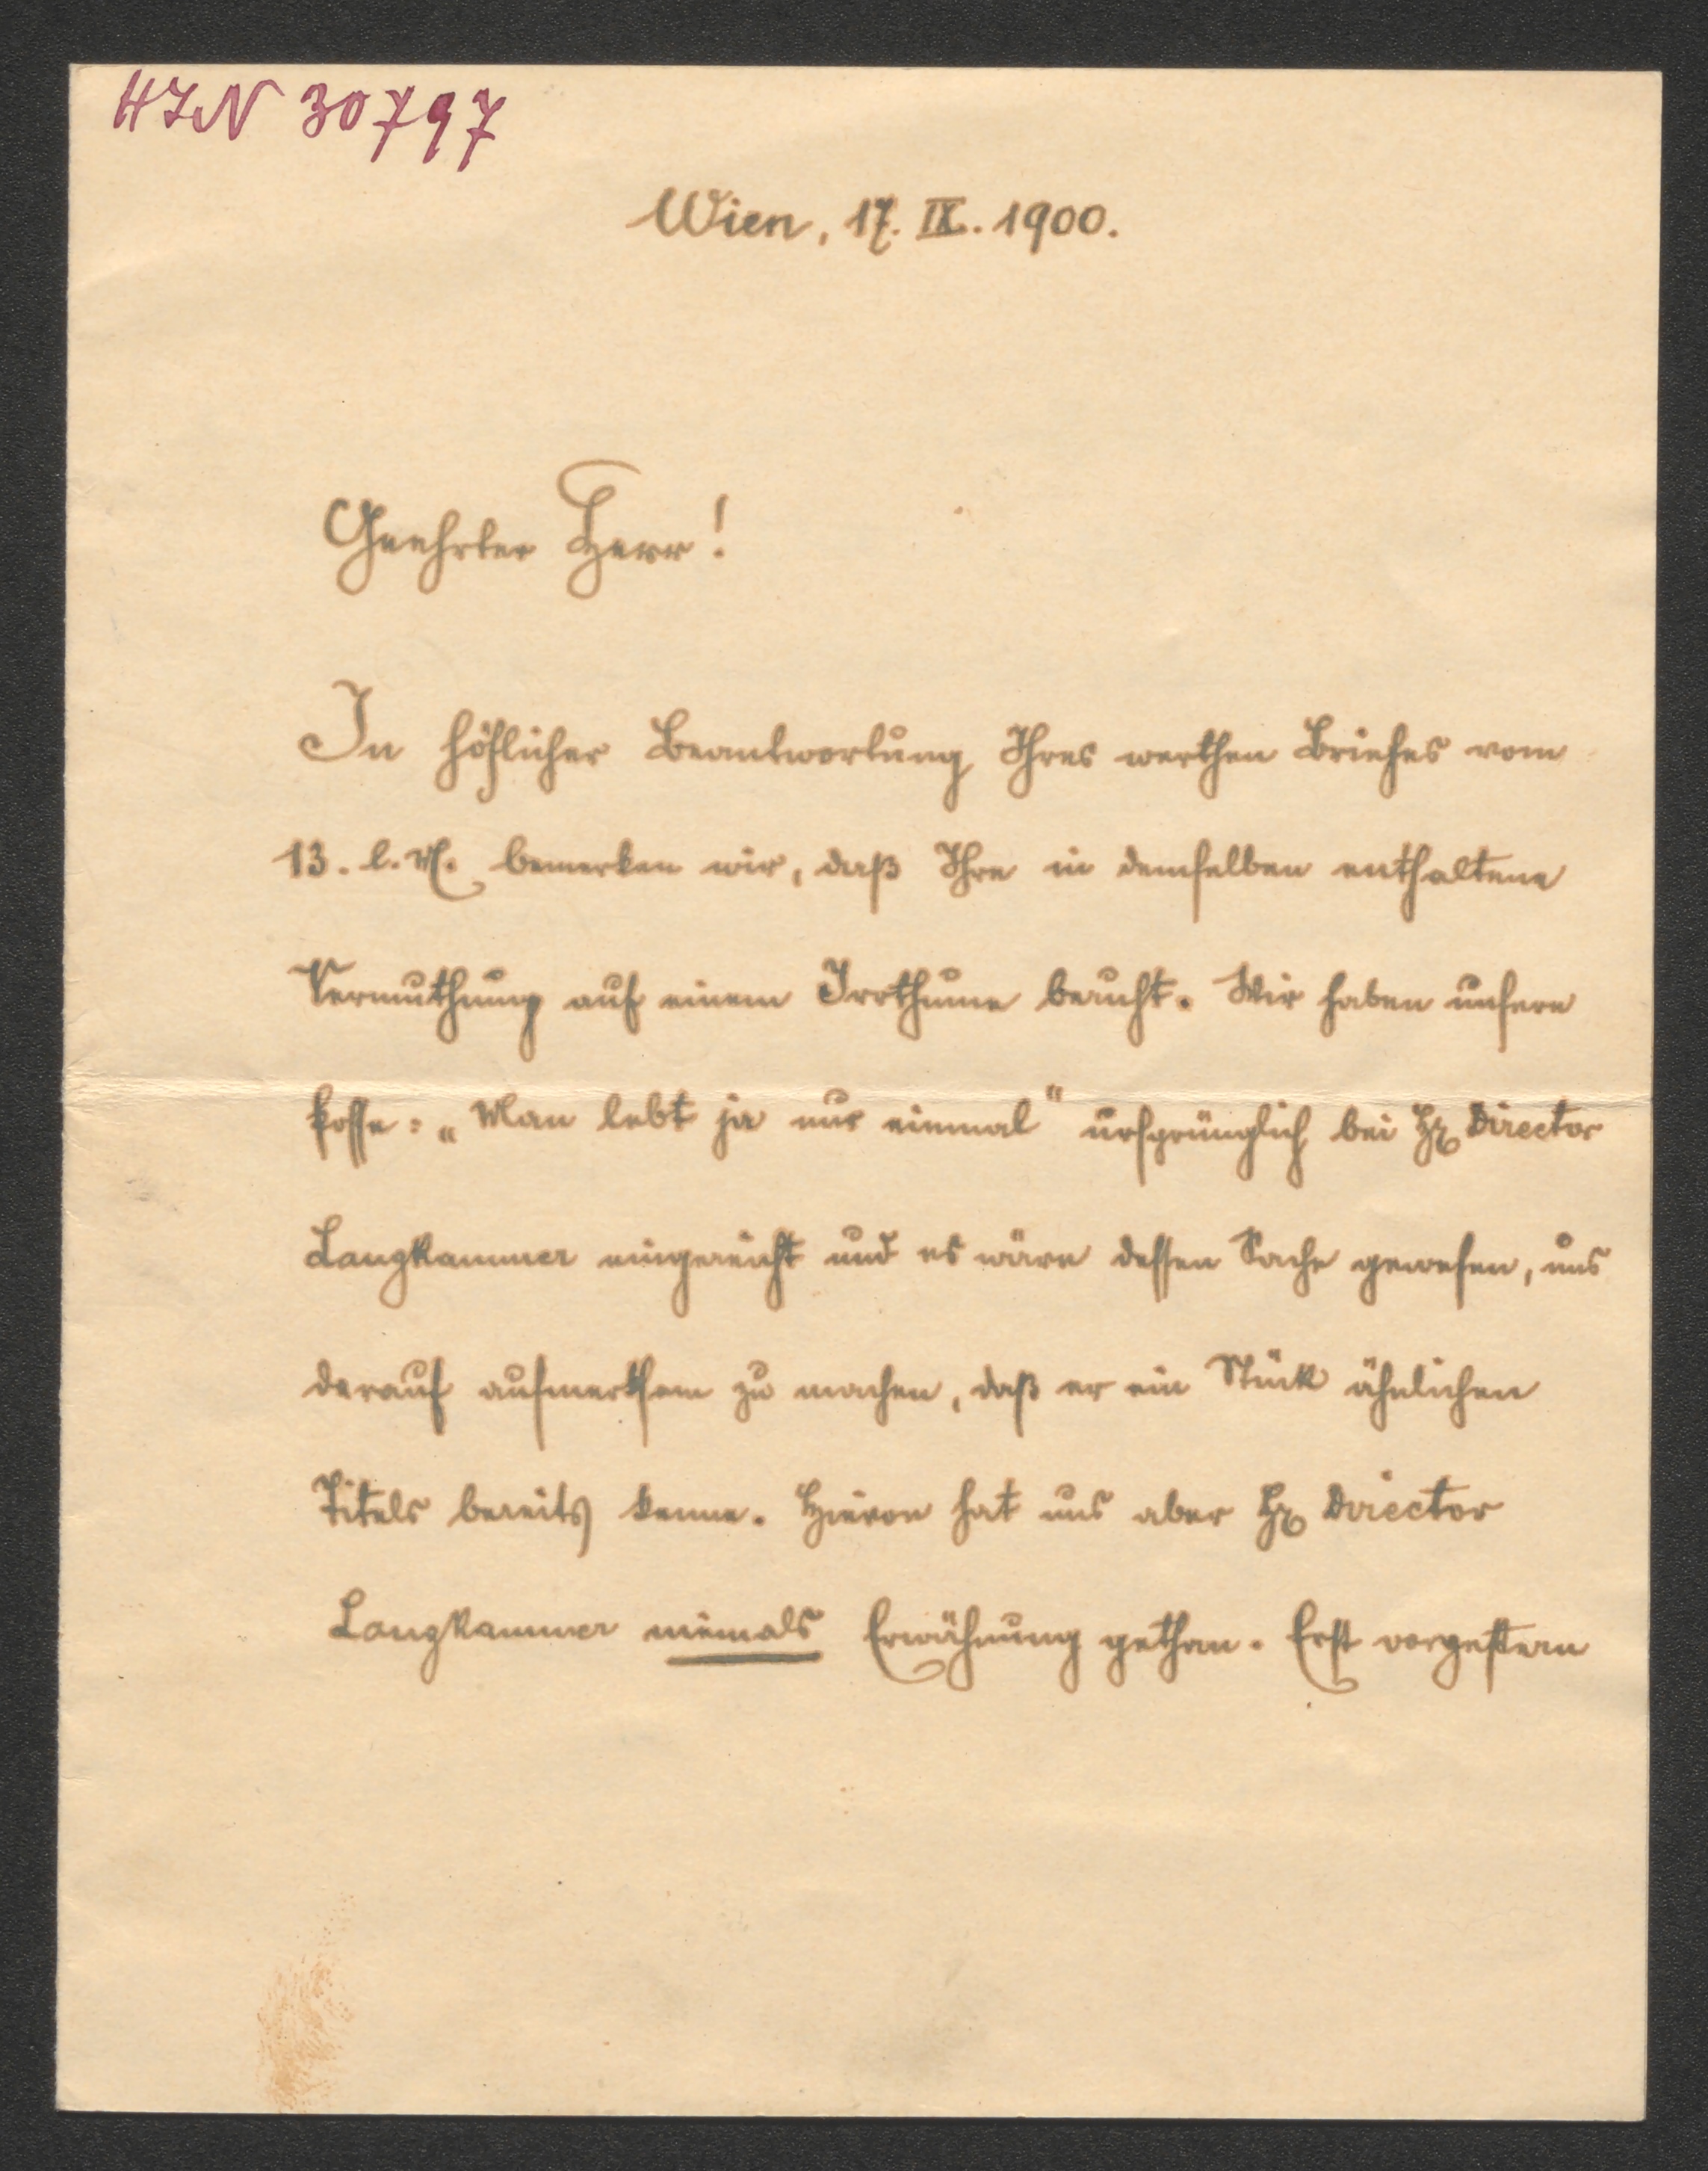 HIN 30797
Wien, 17. IX. 1900.
Geehrter Herr!
In höflicher Beantwortung Ihres werthen Briefes vom
13. l. M. bemerken wir, daß Ihre in demselben enthaltene
Vermuthung auf einem Irrthume beruht. Wir haben unsere
Posse: „Man lebt ja nur einmal" ursprünglich bei Hr Director
Langkammer eingereicht und es wäre dessen Sache gewesen, uns
darauf aufmerksam zu machen, daß er ein Stück ähnlichen
Titels bereits kenne. Hievon hat uns aber Hr Director
Langkammer niemals Erwähnung gethan. Erst vorgestern